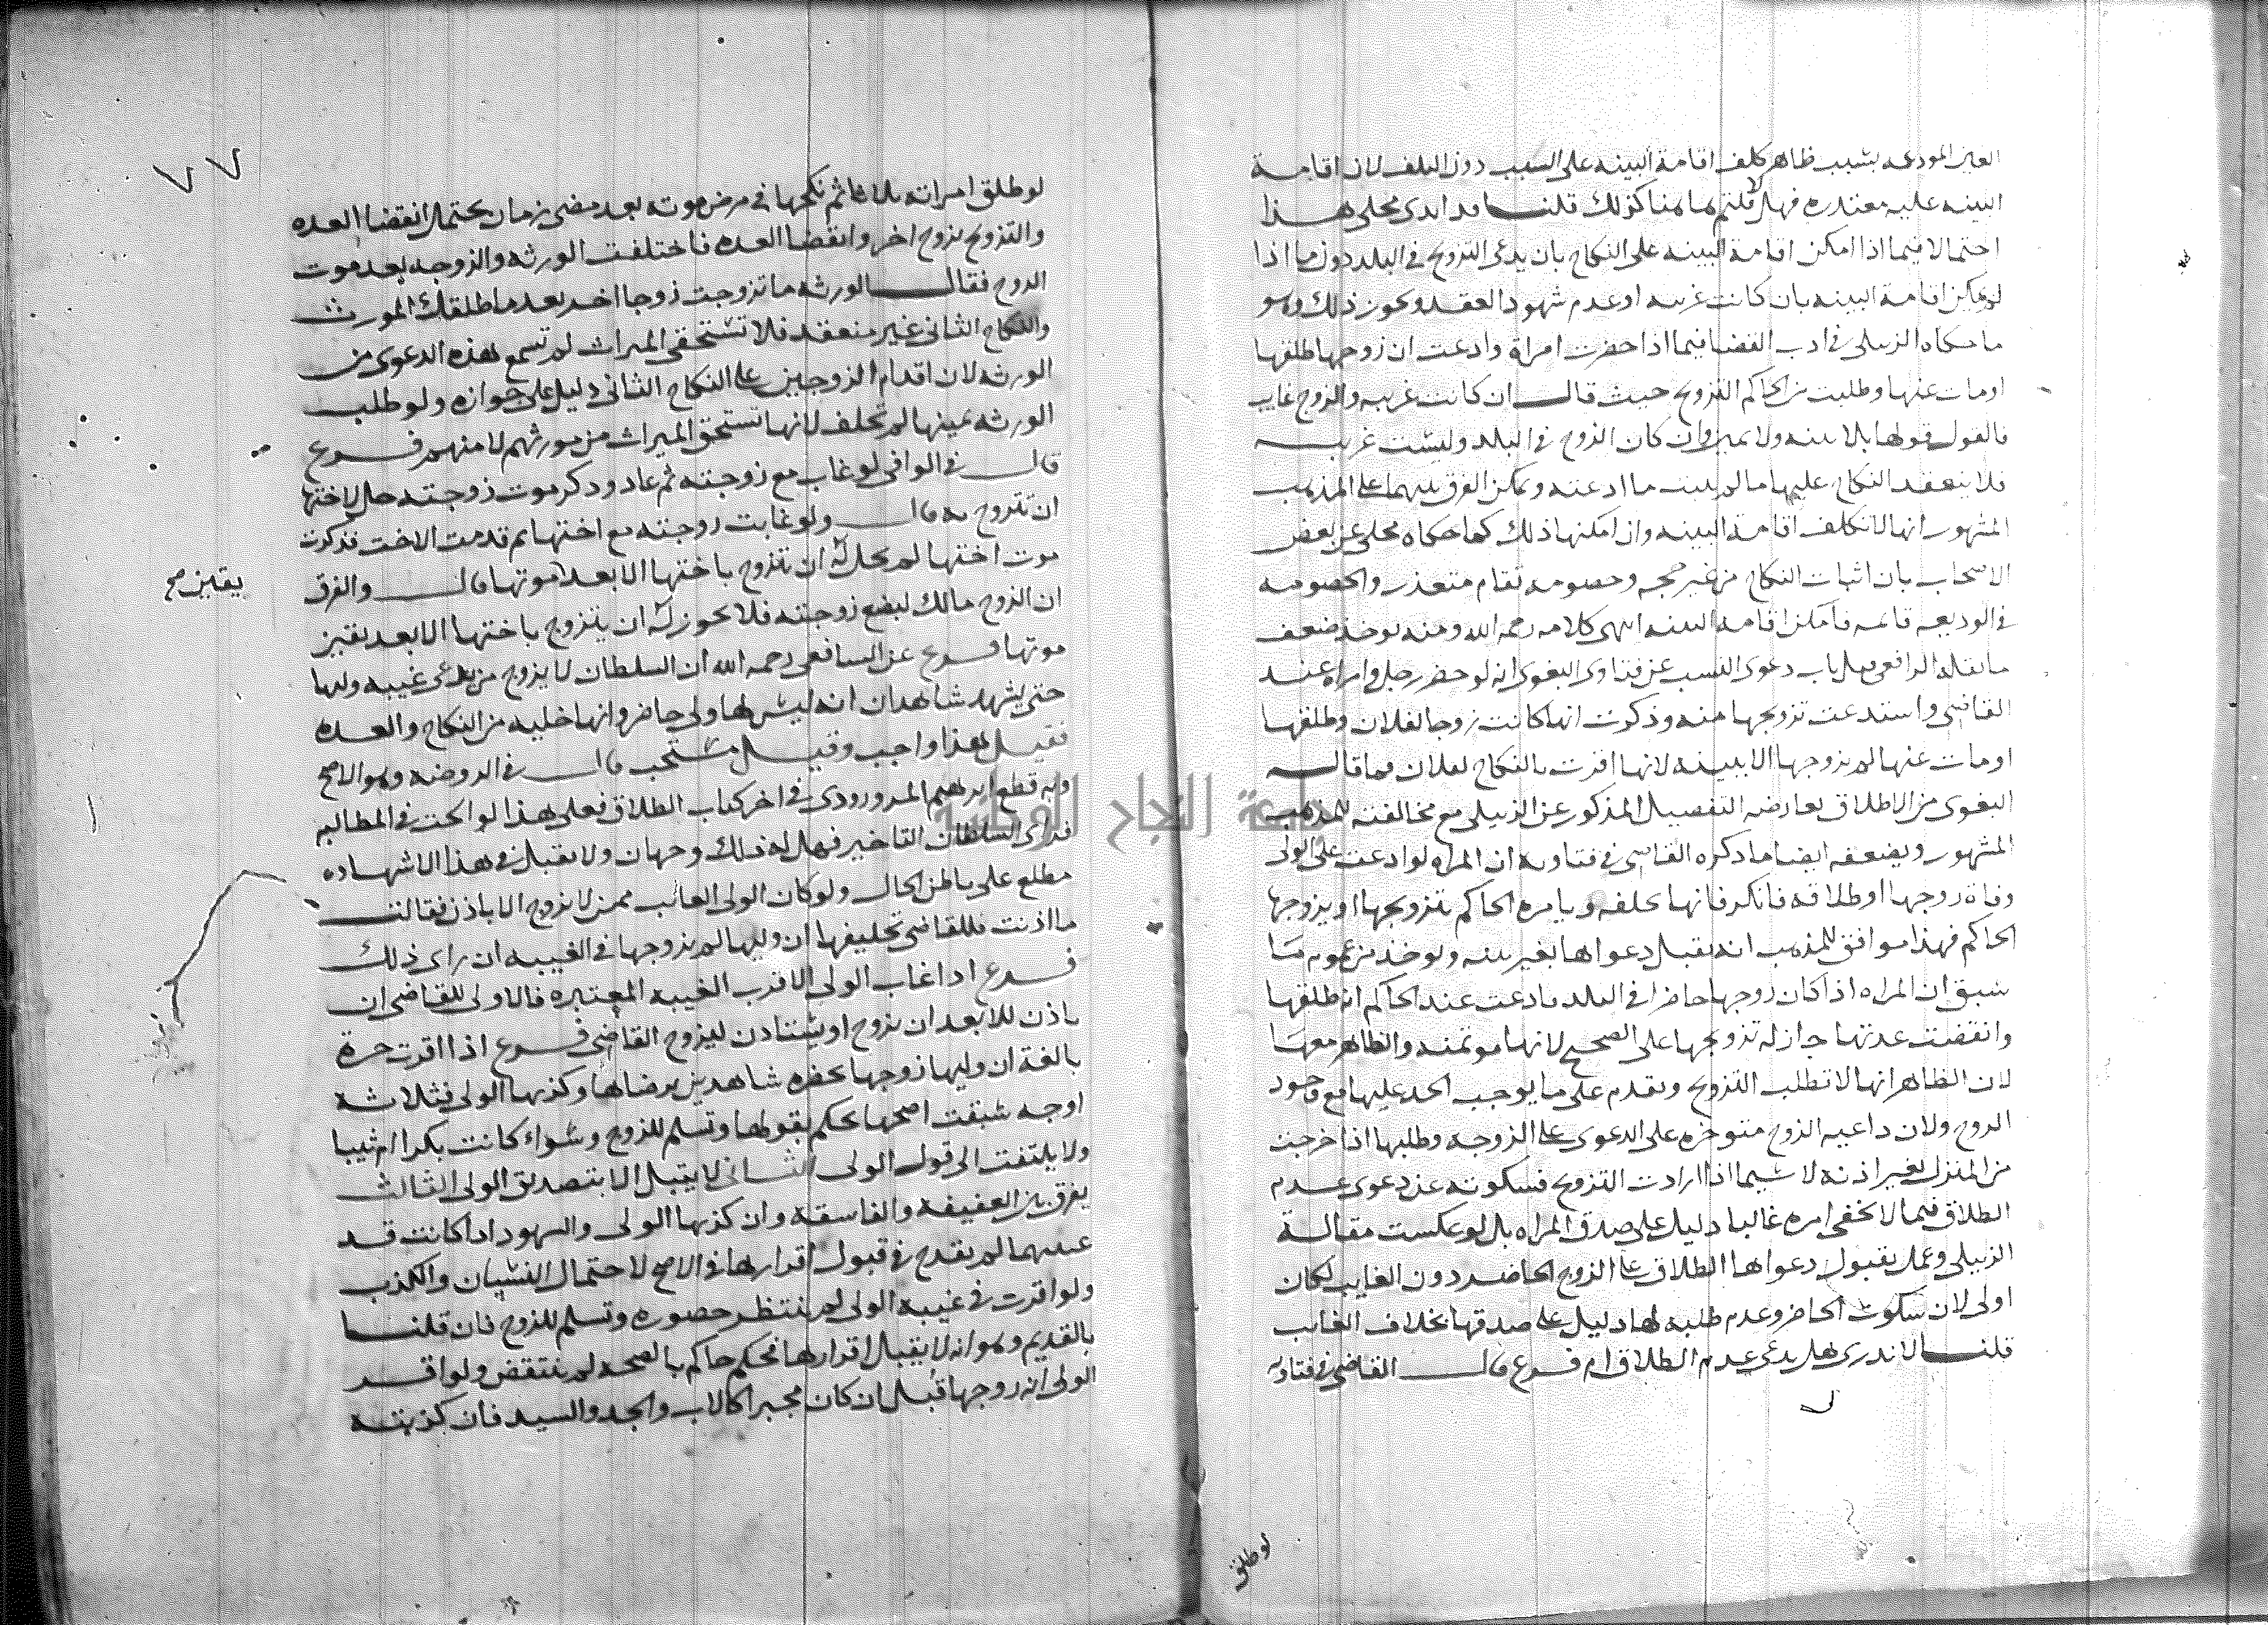 العين المودعه بسبب ظاهر كلف اقامة البينه على السبب دون التلف لان اقامة
البينه عليه معتدره فهلا قلتم هاهنا كذلك قلنا قد ابدى مجلى هذا
احتمالا فيما اذا امكن اقامة البينه على النكاح بان يدعى التزويج في البلد دون ما اذا
لم يمكن اقامة البينه بان كانت غريبه او عدم شهود العقد ونحو ذلك وهو
ما حكاه الزبيلى في ادب القضا فيما اذا حضرت امراة وادعت ان زوجها طلقها
او مات عنها وطلبت من الحاكم التزويج حيث قال ان كانت غريبه والزوج غايب
فالقول قولها بلا بينه ولا يمين وان كان الزوج في البلد وليست غريبه
فلا ينعقد النكاح عليها ما لم يثبت ما ادعته ويمكن الفرق بينهما على المذهب
المشهور انها لا تكلف اقامة البينه وان امكنها ذلك كما حكاه مجلى عن بعض
الاصحاب بان اثبات النكاح من غير حجه وخصومه تقام متعذر والخصومه
في الوديعه قائمه فامكن اقامه البينه انتهى كلامه رحمه الله ومنه يوخذ ضعف
ما نقله الرافعى قبل باب دعوى النسب عن فتاوى البغوى انه لو حضر رجل وامراه عند
القاضى واستدعت تزويجها منه وذكرت انها كانت زوجا لفلان وطلقها
او مات عنها لم يزوجها الا ببينه لانها اقرت بالنكاح لفلان فما قاله
البغوى من الاطلاق يعارضه التفصيل المذكور عن الزبيلى مع مخالفته للمذهب
المشهور ويضعفه ايضا ما ذكره القاضى في فتاويه ان المراه لو ادعت على الولى
وفاة زوجها او طلاقه فانكر فانها تحلفه ويامره الحاكم بتزويجها او يزوجها
الحاكم فهذا موافق للمذهب انه يقبل دعواها بغير بينه ويوخذ من عموم ما
سبق ان المراه اذا كان زوجها حاضرا في البلد فادعت عند الحاكم انه طلقها
وانقضت عدتها جاز له تزويجها على الصحيح لانها موتمنه والظاهر معها
لان الظاهر انها لا تطلب التزويج وتقدم على ما يوجب الحد عليها مع وجود
الزوج ولان داعيه الزوج متوفره على الدعوى على الزوجه وطلبها اذا خرجت
من المنزل بغير اذنه لا سيما اذا ارادت التزويج فسكوته عن دعوى عدم
الطلاق فيما لا يخفى امره غالبا دليل على صدق المراه بل لو عكست مقالة
الزبيلى وعمل بقبول دعواها الطلاق على الزوج الحاضر دون الغايب لكان
اولى لان سكوت الحاضر وعدم طلبه لها دليل على صدقها بخلاف الغائب
قلنا لا ندرى هل يدعى عدم الطلاق ام فرع قال القاضى في فتاويه
لو طلق
٧٧
لو طلق امراته ثلاثا ثم نكحها في مرض موته بعد مضى زمان يحتمل انقضا العده
والتزويج بزوج اخر وانقضا العده فاختلفت الورثه والزوجه بعد موت
الزوج فقال الورثه ما تزوجت زوجا اخر بعد ما طلقك المورث
والنكاح الثانى غير منعقد فلا تستحقى الميراث لم تسمع هذه الدعوى من
الورثه لان اقدام الزوجين على النكاح الثانى دليل على جوازه ولو طلب
الورثه يمينها لم تحلف لانها تستحق الميراث من مورثهم لا منهم فرع
قال في الوافى لو غاب مع زوجته ثم عاد وذكر موت زوجته حل لاختها
ان تتزوج به قال ولو غابت زوجته مع اختها ثم قدمت الاخت فذكرت
موت اختها لم يحل له ان يتزوج باختها الا بعد موتها قال والفرق
يقين صح
ان الزوج مالك لبضع زوجته فلا يجوز له ان يتزوج باختها الا بعد يقين
موتها فرع عن الشافعى رحمه الله ان السلطان لا يزوج من تدعى غيبه وليها
حتى يشهد شاهدان انه ليس لها ولى حاضر وانها خليه من النكاح والعده
فقيل هذا واجب وقيل مستحب قال في الروضه وهو الاصح
وبه قطع ابرهيم المروروذى في اخر كتاب الطلاق فعلى هذا لو الحت في المطالبه
فراى السلطان التاخير فهل له ذلك وجهان ولا يقبل في هذا الا شهاده
مطلع على باطن الحال ولو كان الولى الغائب ممن لا يزوج الا باذن فقالت
ما اذنت فللقاضى تحليفها ان وليها لم يزوجها في الغيبه ان راى ذلك
فرع اذا غاب الولى الاقرب الغيبه المعتبره فالاولى للقاضى ان
ياذن للابعد ان يزوج او يستاذن ليزوج القاضى فرع اذا اقرت حرة
بالغة ان وليها زوجها بحضره شاهدين برضاها وكذبها الولى فثلاثة
اوجه سبقت اصحها يحكم بقولها وتسلم للزوج وسواء كانت بكرا ام ثيبا
ولا يلتفت الى قول الولى الثانى لا يقبل الا بتصديق الولى الثالث
يفرق بين العفيفه والفاسقه وان كذبها الولى والشهود اذا كانت قد
عينهما لم يقدح في قبول اقرارها في الاصح لاحتمال النسيان والكذب
ولو اقرت في غيبه الولى لم ينتظر حضوره وتسلم للزوج فان قلنا
بالقديم وهو انه لا يقبل اقرارها فحكم حاكم بالصحه لم ينتقض ولو اقر
الولى انه زوجها قبل ان كان مجبرا كالاب والجد والسيد فان كذبته